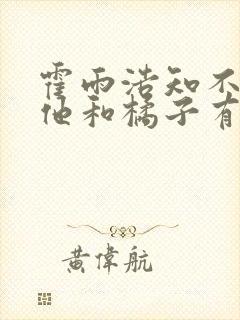 霍雨浩知不
他和橘子有
黄偉航